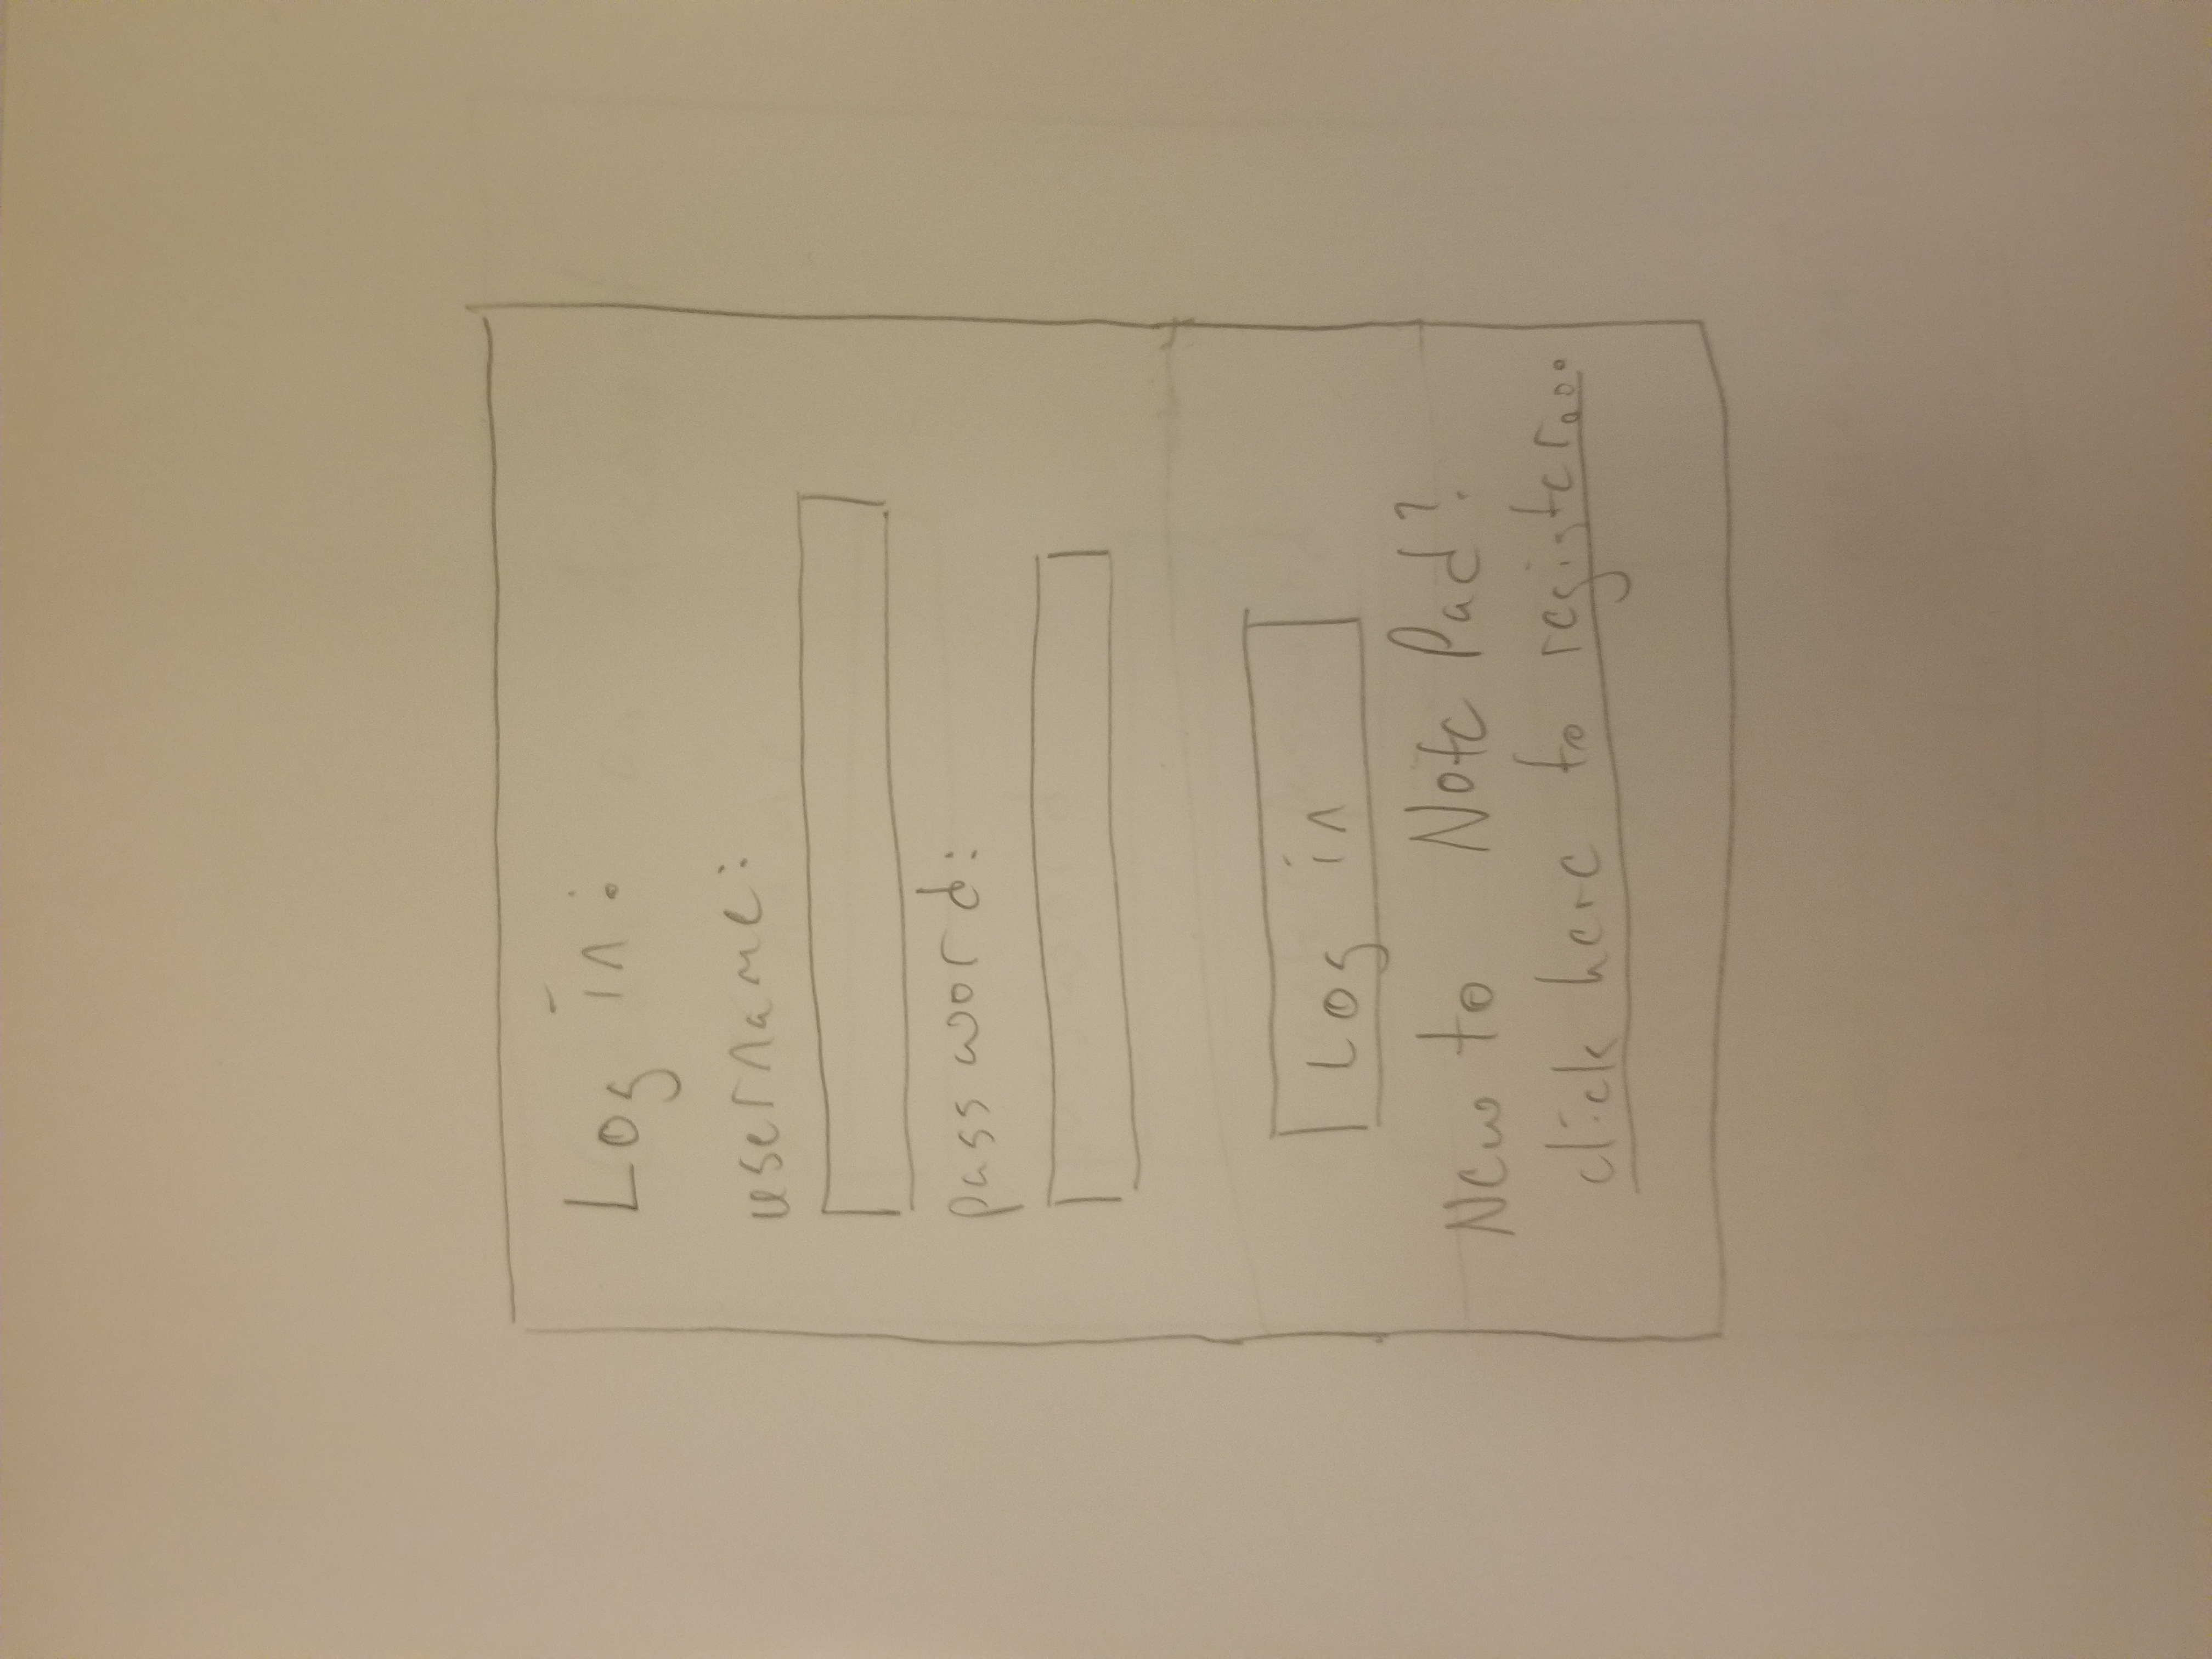 Log in:
username:
password:
Log in
New to Note Pad?
click here to register...